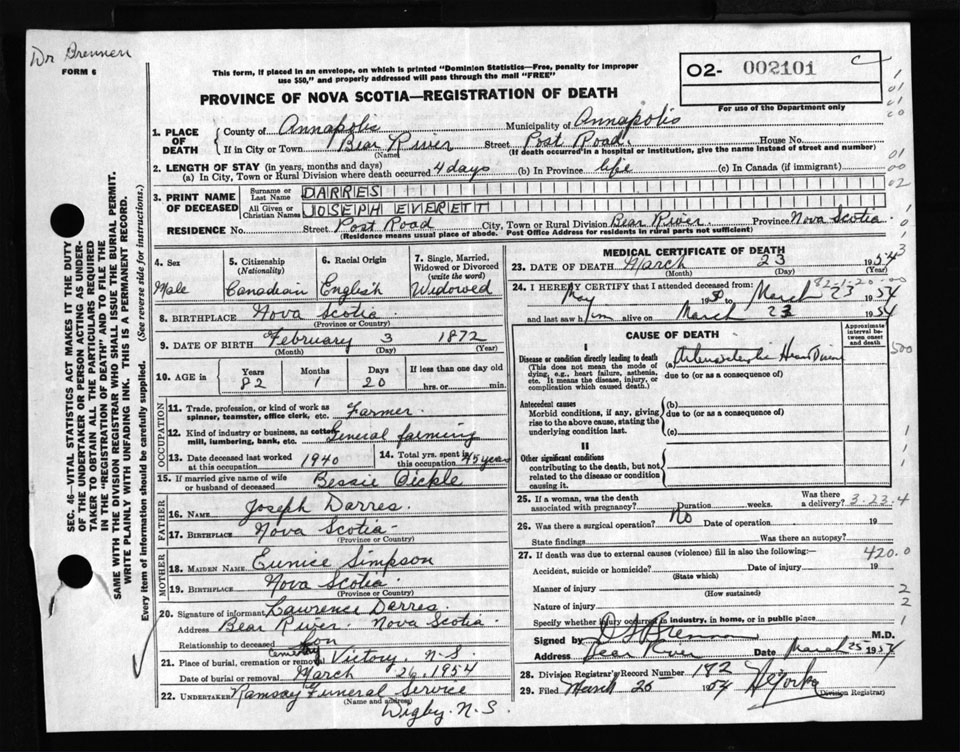 Dr Brennen
FORM 6
This form, if placed in an envelope, on which is printed "Dominion Statistics—Free, penalty for improper
use $50," and properly addressed will pass through the mail "FREE"
O2- 002101
For use of the Department only
PROVINCE OF NOVA SCOTIA—REGISTRATION OF DEATH
1. PLACE OF DEATH
County of Annapolis Municipality of Annapolis
If in City or Town Bear River Street Post Road House No.
(Name) (If death occurred in a hospital or institution, give the name instead of street and number)
2. LENGTH OF STAY (in years, months and days)
(a) In City, Town or Rural Division where death occurred 4 days (b) In Province life (c) In Canada (if immigrant)
3. PRINT NAME OF DECEASED
Surname or Last Name DARRES
All Given or Christian Names JOSEPH EVERETT
RESIDENCE No. Street Post Road City, Town or Rural Division Bear River Province Nova Scotia
(Residence means usual place of abode. Post Office Address for residence in rural parts not sufficient)
SEC. 46—VITAL STATISTICS ACT MAKES IT THE DUTY
OF THE UNDERTAKER OR PERSON ACTING AS UNDER-
TAKER TO OBTAIN ALL THE PARTICULARS REQUIRED
IN THE "REGISTRATION OF DEATH" AND TO FILE THE
SAME WITH THE DIVISION REGISTRAR WHO SHALL ISSUE THE BURIAL PERMIT.
WRITE PLAINLY WITH UNFADING INK. THIS IS A PERMANENT RECORD.
Every item of information should be carefully supplied. (See reverse side for instructions.)
4. Sex
Male
5. Citizenship (Nationality)
Canadian
6. Racial Origin
English
7. Single, Married, Widowed or Divorced (write the word)
Widowed
8. BIRTHPLACE Nova Scotia
(Province or Country)
9. DATE OF BIRTH February 3 1872
(Month) (Day) (Year)
10. AGE in Years Months Days If less than one day old
82 1 20 hrs. or min.
OCCUPATION
11. Trade, profession, or kind of work as spinner, teamster, office clerk, etc. Farmer
12. Kind of industry or business, as cotton mill, lumbering, bank, etc. General farming
13. Date deceased last worked at this occupation 1940
14. Total yrs. spent in this occupation 45 years
15. If married give name of wife or husband of deceased Bessie Pickle
FATHER
16. NAME Joseph Darres
17. BIRTHPLACE Nova Scotia
(Province or Country)
MOTHER
18. MAIDEN NAME Eunice Simpson
19. BIRTHPLACE Nova Scotia
(Province or Country)
20. Signature of informant Lawrence Darres
Address Bear River Nova Scotia
Relationship to deceased Son
21. Place of burial, cremation or removal Cemetery Victory, N.S.
Date of burial or removal March 26, 1954
22. UNDERTAKER Ramsay Funeral Service
(Name and address)
Digby. N.S.
MEDICAL CERTIFICATE OF DEATH
23. DATE OF DEATH March 23 1954
(Month) (Day) (Year)
24. I HEREBY CERTIFY that I attended deceased from:
May 1950 to March 23 1954
and last saw him alive on March 23 1954
CAUSE OF DEATH
Approximate interval between onset and death
I
Disease or condition directly leading to death
(This does not mean the mode of dying, e.g., heart failure, asthenia, etc. It means the disease, injury, or complication which caused death.)
(a) Arteriosclerotic Heart Disease
due to (or as a consequence of)
Antecedent causes
Morbid conditions, if any, giving rise to the above cause, stating the underlying condition last.
(b)
due to (or as a consequence of)
(c)
II
Other significant conditions
contributing to the death, but not related to the disease or condition causing it.
25. If a woman, was the death associated with pregnancy? Duration weeks. Was there a delivery? 3.23.4
26. Was there a surgical operation? No Date of operation 19
State findings Was there an autopsy?
27. If death was due to external causes (violence) fill in also the following:—
420.0
Accident, suicide or homicide? Date of injury 19
(State which)
Manner of injury
(How sustained)
Nature of injury
Specify whether injury occurred in industry, in home, or in public place
Signed by Brennan M.D.
Address Bear River Date March 25 1954
28. Division Registrar's Record Number 182
29. Filed March 25 1954
(Division Registrar)